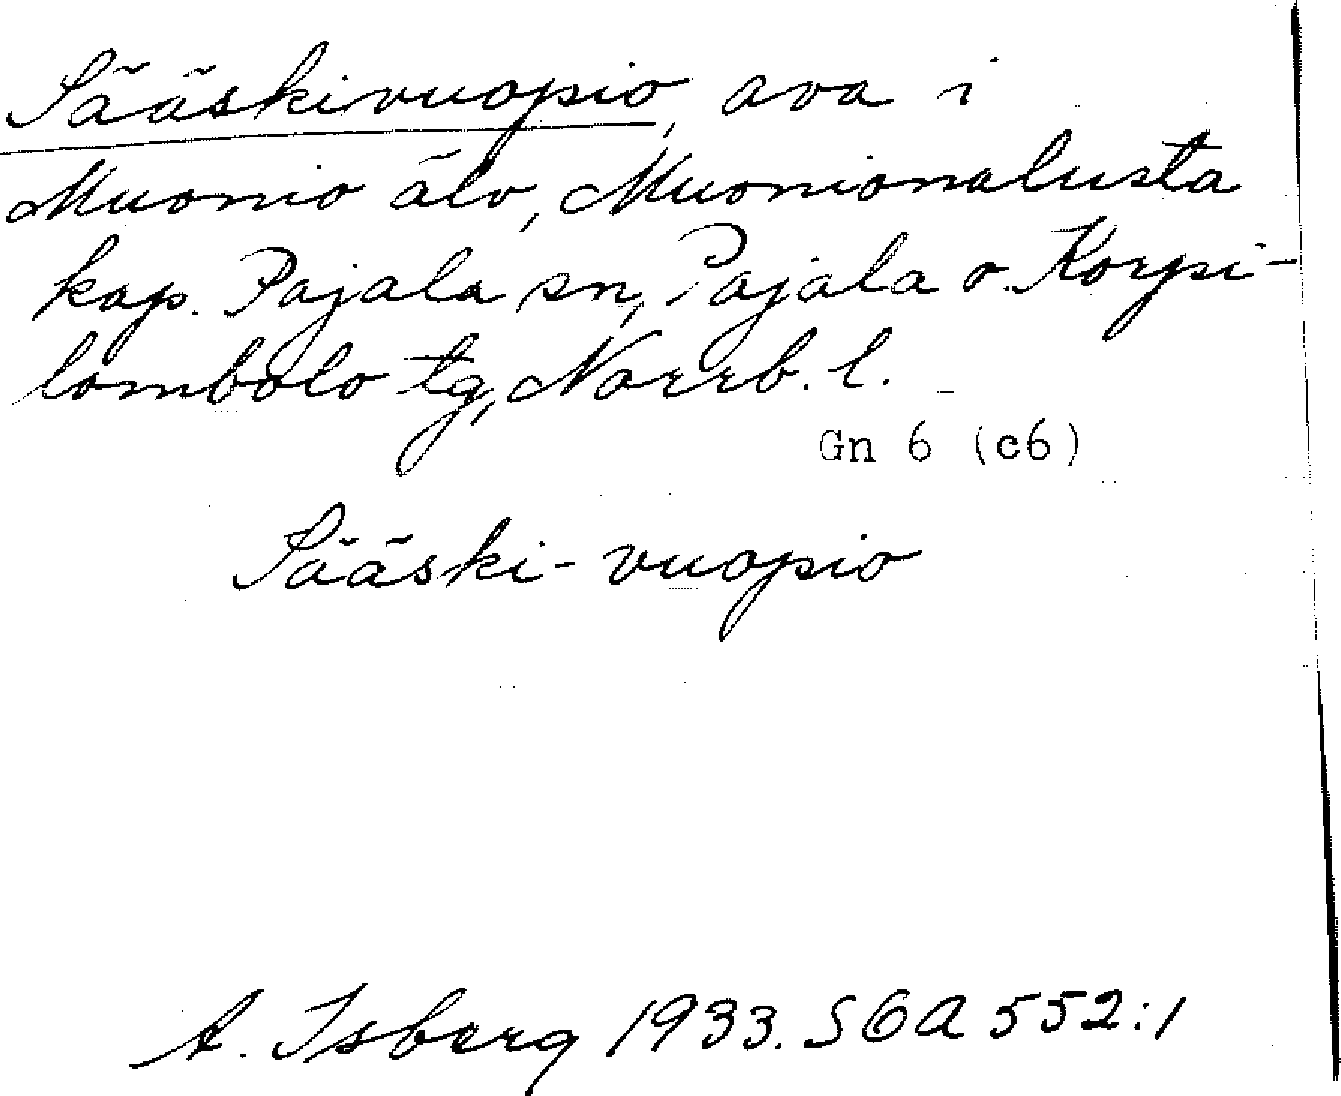 Sääskivuopio, ava i
Muonio älv, Muonionalusta
kap. Pajala sn, Pajala o. Korpi-
lombolo tg, Norrb. l.
Gn 6 (c6)
Sääski-vuopio
A. Isberg 1933. SOA 552:1